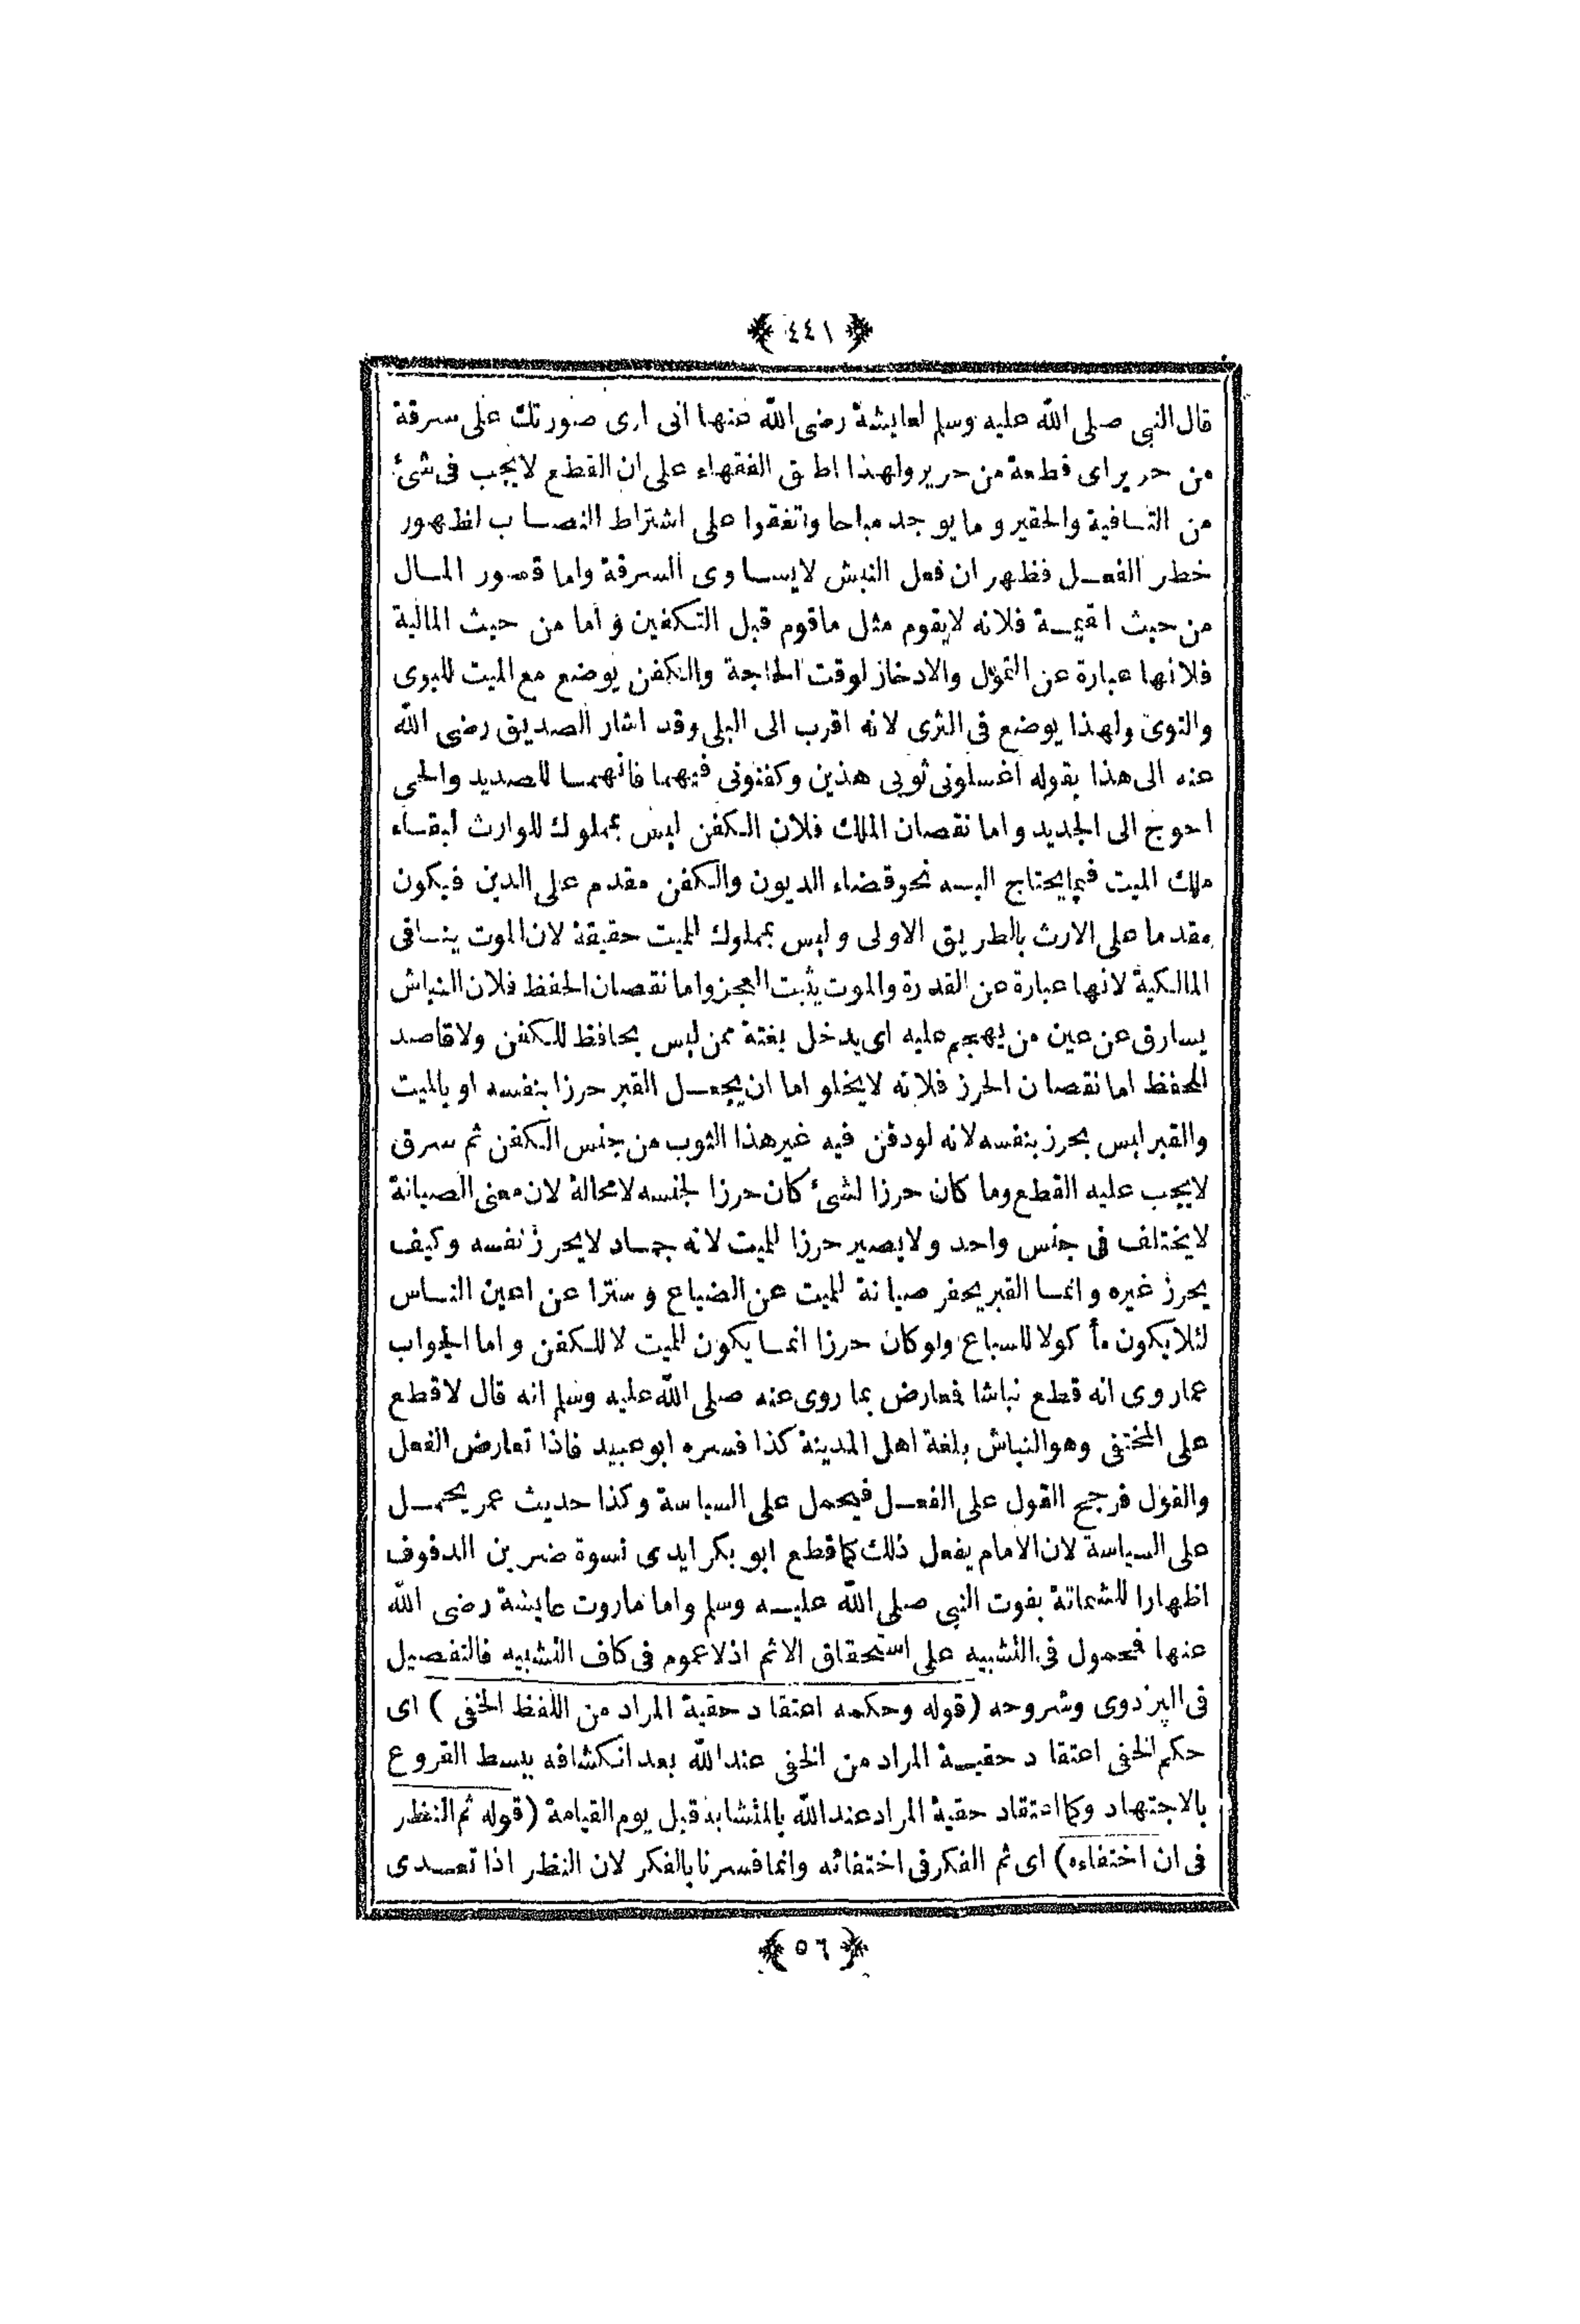 ﴿ ٤٤١ ﴾
قال النبى صلى الله عليه وسلم لعايشة رضى الله عنها انى ارى صورتك على سرقة
من حرير اى قطعة من حرير ولهذا اطبق الفقهاء على ان القطع لايجب فى شئ
من التافية والحقير وما يوجد مباحا واتفقوا على اشتراط النصاب لظهور
خطر الفعل فظهر ان فعل النبش لايساوى السرقة واما قصور المال
من حيث القيمة فلانه لايقوم مثل ماقوم قبل التكفين واما من حيث المالية
فلانها عبارة عن التمول والادخاز لوقت الحاجة والكفن يوضع مع الميت للبوى
والتوى ولهذا يوضع فى الثرى لانه اقرب الى البلى وقد اشار الصديق رضى الله
عنه الى هذا بقوله اغسلونى ثوبى هذين وكفنونى فيهما فانهما للصديد والحى
احوج الى الجديد واما نقصان الملك فلان الكفن ليس بمملوك للوارث لبقاء
ملك الميت فيما يحتاج اليه نحو قضاء الديون والكفن مقدم على الدين فيكون
مقدما على الارث بالطريق الاولى وليس بمملوك للميت حقيقة لان الموت ينافى
المالكية لانها عبارة عن القدرة والموت يثبت العجز واما نقصان الحفظ فلان النباش
يسارق عن عين من يهجم عليه اى يدخل بغتة ممن ليس بحافظ للكفن ولا قاصد
للحفظ اما نقصان الحرز فلانه لايخلو اما ان يجعل القبر حرزا بنفسه او بالميت
والقبر ليس بحرز بنفسه لانه لودفن فيه غير هذا الثوب من جنس الكفن ثم سرق
لايجب عليه القطع وما كان حرزا لشئ كان حرزا لجنسه لامحالة لان معنى الصيانة
لايختلف فى جنس واحد ولايصير حرزا للميت لانه جماد لايحرز نفسه وكيف
يحرز غيره وانما القبر يحفر صيانة للميت عن الضياع وسترا عن اعين الناس
لئلا يكون مأكولا للسباع ولوكان حرزا انما يكون للميت لا للكفن واما الجواب
عماروى انه قطع نباشا فعارض بما روى عنه صلى الله عليه وسلم انه قال لاقطع
على المختفى وهو النباش بلغة اهل المدينة كذا فسره ابو عبيد فاذا تعارض الفعل
والقول فرجح القول على الفعل فيحمل على السياسة وكذا حديث عمر يحتمل
على السياسة لان الامام يفعل ذلك كما قطع ابو بكر ايدى نسوة ضربن الدفوف
اظهارا للشماتة بفوت النبى صلى الله عليه وسلم واما ماروت عايشة رضى الله
عنها فمحمول فى التشبيه على استحقاق الاثم اذلا عموم فى كاف التشبيه فالتفصيل
فى البزدوى وشروحه (قوله وحكمه اعتقاد حقية المراد من اللفظ الخفى) اى
حكم الخفى اعتقاد حقية المراد من الخفى عند الله بعد انكشافه ببسط الفروع
بالاجتهاد وكما اعتقاد حقية المراد عند الله بالمتشابه قبل يوم القيامة (قوله ثم النظر
فى ان اختفاءه) اى ثم الفكر فى اختفائه وانما فسرنا بالفكر لان النظر اذا تعدى
﴿ ٥٦ ﴾